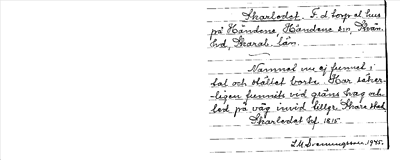 Skarlodet. F.d. torp el. hus
på Händene, Händene sn,
hd, Skarab. län.
Namnet nu ej funnet i
tal och stället borta. Har säker-
ligen funnits vid gräns hag och
led på väg invid Skara stad
Skarlodet hf. 1815
1945.